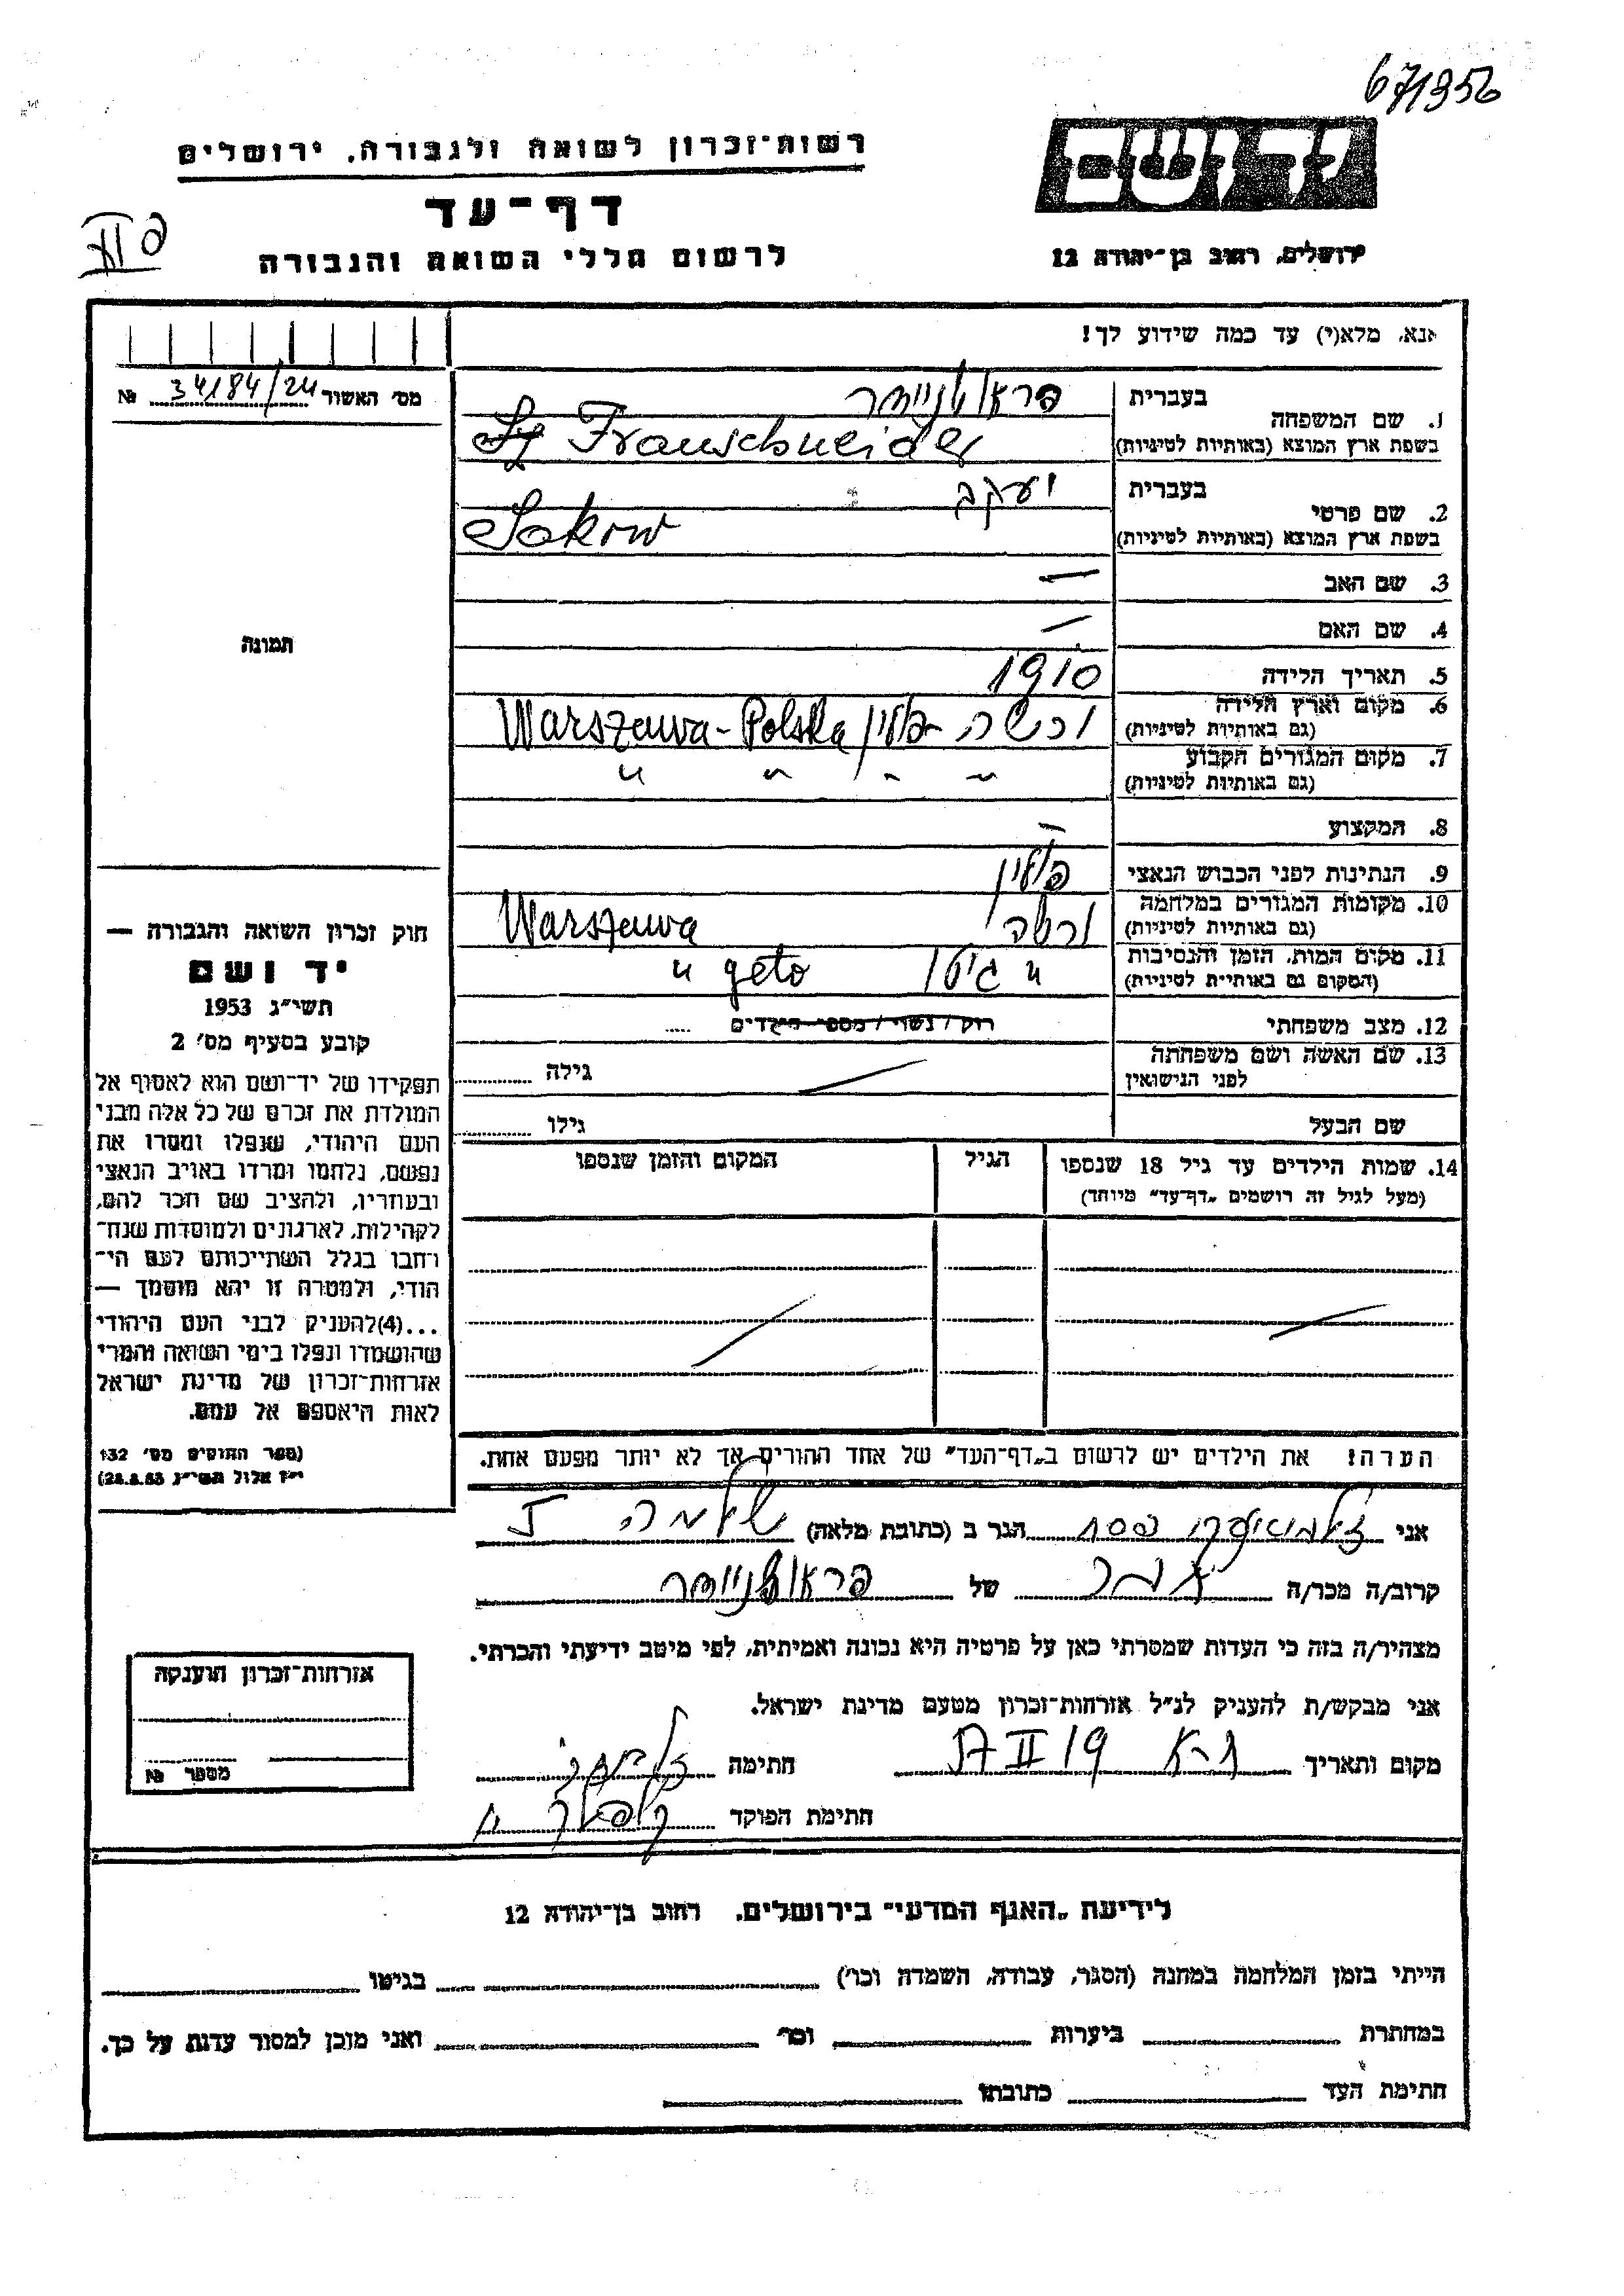 671356
רשות־זכרון לשואה ולגבורה, ירושלים
דף־עד
לרשום חללי השואה והגבורה
יד ושם
ירושלים, רחוב בן־יהודה 12
אנא, מלא(י) עד כמה שידוע לך!
מס׳ האשור 34184/24 №
1. שם המשפחה
בעברית
בשפת ארץ המוצא (באותיות לטיניות)
Frauschneider
2. שם פרטי
בעברית יעקב
בשפת ארץ המוצא (באותיות לטיניות)
3. שם האב —
4. שם האם —
5. תאריך הלידה 1910
6. מקום וארץ הלידה
(גם באותיות לטיניות)
ורשה - פולין Warszawa - Polska
7. מקום המגורים הקבוע
(גם באותיות לטיניות)
" " " "
8. המקצוע —
9. הנתינות לפני הכבוש הנאצי פולין
10. מקומות המגורים במלחמה
(גם באותיות לטיניות)
ורשה Warszawa
11. מקום המות, הזמן והנסיבות
(המקום גם באותיות לטיניות)
" גיטו " geto
12. מצב משפחתי רוק / נשוי / מספר הילדים
13. שם האשה ושם משפחתה
לפני הנישואין
גילה
שם הבעל גילו
14. שמות הילדים עד גיל 18 שנספו
(מעל לגיל זה רושמים „דף־עד״ מיוחד)
הגיל
המקום והזמן שנספו
הערה! את הילדים יש לרשום ב„דף־העד״ של אחד ההורים אך לא יותר מפעם אחת.
תמונה
חוק זכרון השואה והגבורה —
יד ושם
תשי״ג 1953
קובע בסעיף מס׳ 2
תפקידו של יד־ושם הוא לאסוף אל
המולדת את זכרם של כל אלה מבני
העם היהודי, שנפלו ומסרו את
נפשם, נלחמו ומרדו באויב הנאצי
ובעוזריו, ולהציב שם וזכר להם,
לקהילות, לארגונים ולמוסדות שנח־
רבו בגלל השתייכותם לעם הי־
הודי, ולמטרה זו יהא מוסמך —
...(4)להעניק לבני העם היהודי
שהושמדו ונפלו בימי השואה והמרי
אזרחות־זכרון של מדינת ישראל
לאות היאספם אל עמם.
(ספר החוקים מס׳ 132
י״ז אלול תשי״ג 28.8.53)
אני הגר ב (כתובת מלאה)
קרוב/ה מכר/ה של פראושניידר
מצהיר/ה בזה כי העדות שמסרתי כאן על פרטיה היא נכונה ואמיתית, לפי מיטב ידיעתי והכרתי.
אני מבקש/ת להעניק לנ״ל אזרחות־זכרון מטעם מדינת ישראל.
מקום ותאריך חתימה
חתימת הפוקד
אזרחות־זכרון הוענקה
מספר №
לידיעת „האגף המדעי״ בירושלים, רחוב בן־יהודה 12
הייתי בזמן המלחמה במחנה (הסגר, עבודה, השמדה וכו׳) בגיטו
במחתרת ביערות וכו׳ ואני מוכן למסור עדות על כך.
חתימת העד כתובתו